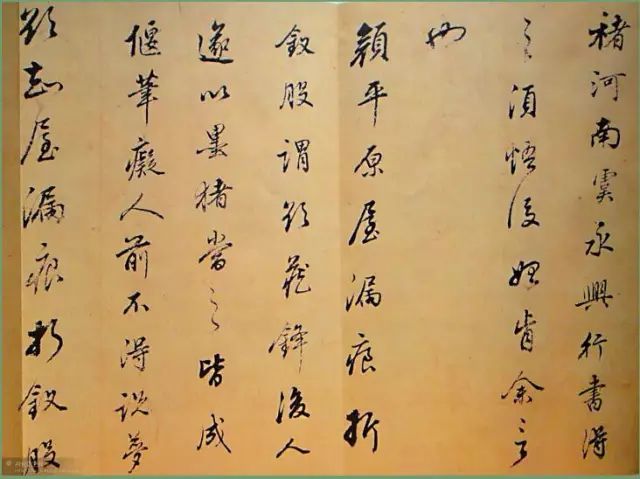 褚河南虞永興行書得
之須悟後始肯余言
也
顏平原屋漏痕折
釵股謂欲藏鋒後人
遂以墨猪當之皆成
偃筆癡人前不得説夢
欲知屋漏痕折釵股